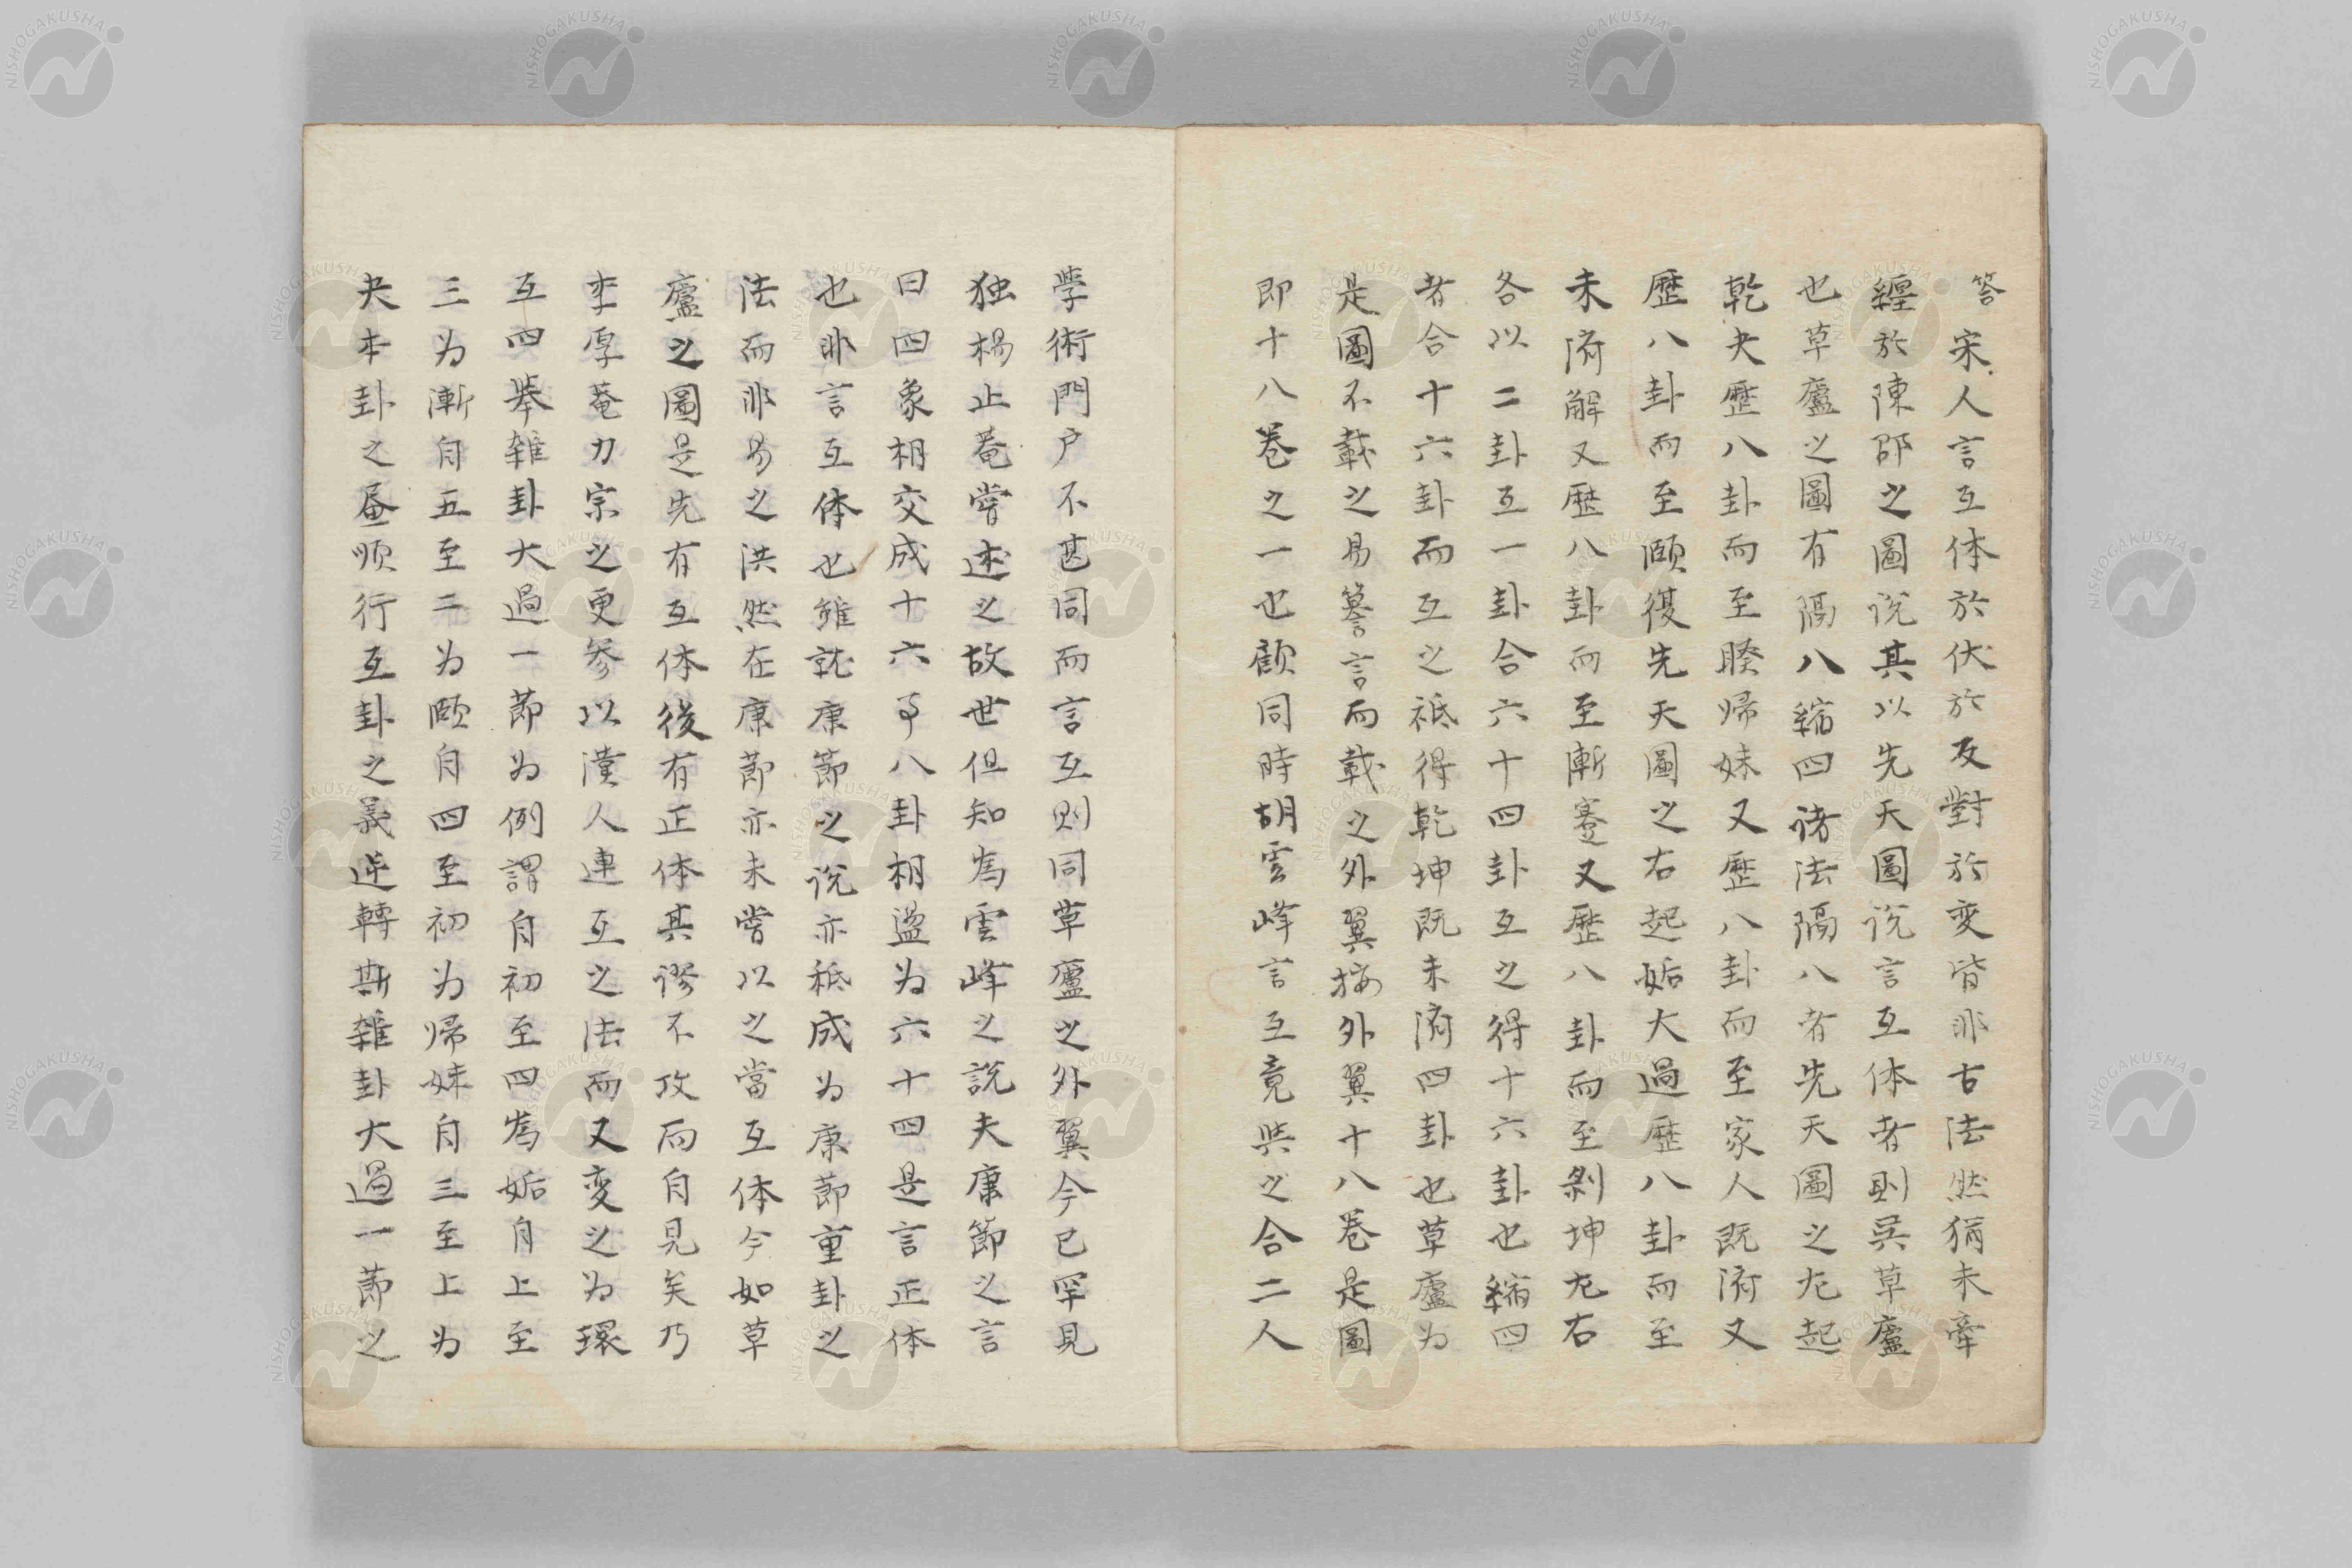 答宋人言互体於伏於反對於変皆非古法然猶未牽
纏於陳邵之圖説其以先天圖説言互体者則吳草廬
也草廬之圖有隔八縮四諸法隔八者先天圖之左起
乾夬歷八卦而至睽帰妹又歷八卦而至家人既済又
歷八卦而至頤復先天圖之右起姤大過歷八卦而至
未済解又歷八卦而至漸蹇又歷八卦而至剝坤左右
各以二卦互一卦合六十四卦互之得十六卦也縮四
者合十六卦而互之祗得乾坤既未済四卦也草廬為
是圖不載之易纂言而載之外翼按外翼十八巻是圖
即十八巻之一也顧同時胡雲峰言互竟與之合二人
學術門戸不甚同而言互則同草廬之外翼今已罕見
独楊止菴嘗述之故世但知為雲峰之説夫康節之言
曰四象相交成十六事八卦相盪為六十四是言正体
也非言互体也雖就康節之説亦祗成為康節重卦之
法而非易之洪然在康節亦未嘗以之當互体今如草
廬之圖是先有互体後有正体其謬不攻而自見矣乃
李厚菴力宗之更参以漢人連互之法而又変之為環
互四挙雑卦大過一節為例謂自初至四為姤自上至
三為漸自五至二為頤自四至初為帰妹自三至上為
夬本卦之畫順行互卦之義逆轉斯雑卦大過一節之